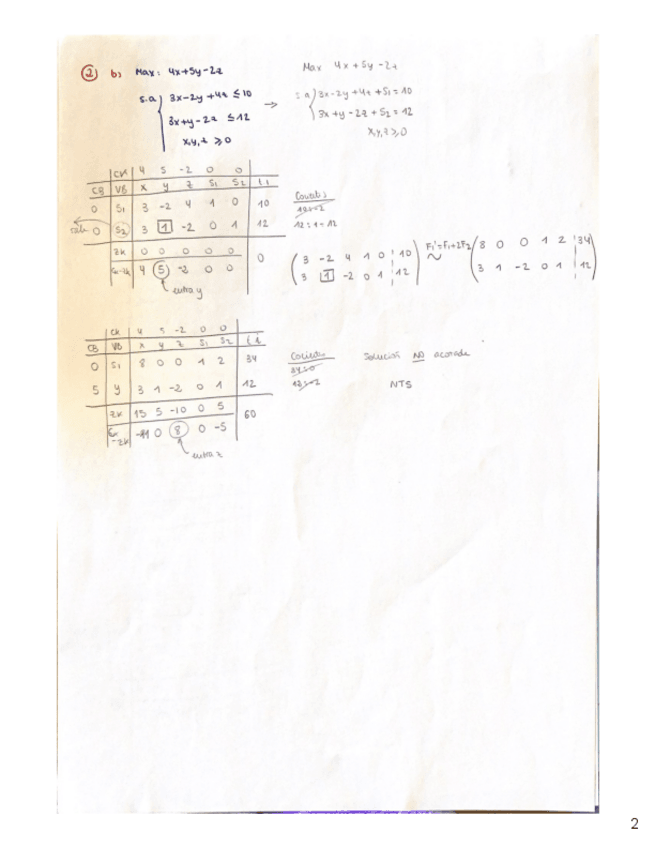 2 b) Max: 4x+5y-2z
s.a 3x-2y+4z ≤ 10
3x+y-2z ≤ 12
x,y,z ≥ 0
→
Max 4x+5y-2z
s.a 3x-2y+4z+S1=10
3x+y-2z+S2=12
x,y,z ≥ 0
CK 4 5 -2 0 0
CB VB x y z S1 S2 ti
0 S1 3 -2 4 1 0 10
sale 0 S2 3 1 -2 0 1 12
ZK 0 0 0 0 0 0
CK-ZK 4 5 -2 0 0
entra y
Cocientes
10:-2
12:1=12
3 -2 4 1 0 10
3 1 -2 0 1 12
F1'=F1+2F2
~
8 0 0 1 2 34
3 1 -2 0 1 12
CK 4 5 -2 0 0
CB VB x y z S1 S2 ti
0 S1 8 0 0 1 2 34
5 y 3 1 -2 0 1 12
ZK 15 5 -10 0 5 60
CK-ZK -11 0 8 0 -5
entra z
Cocientes
34:0
12:-2
Solución NO acotada
NTS
2